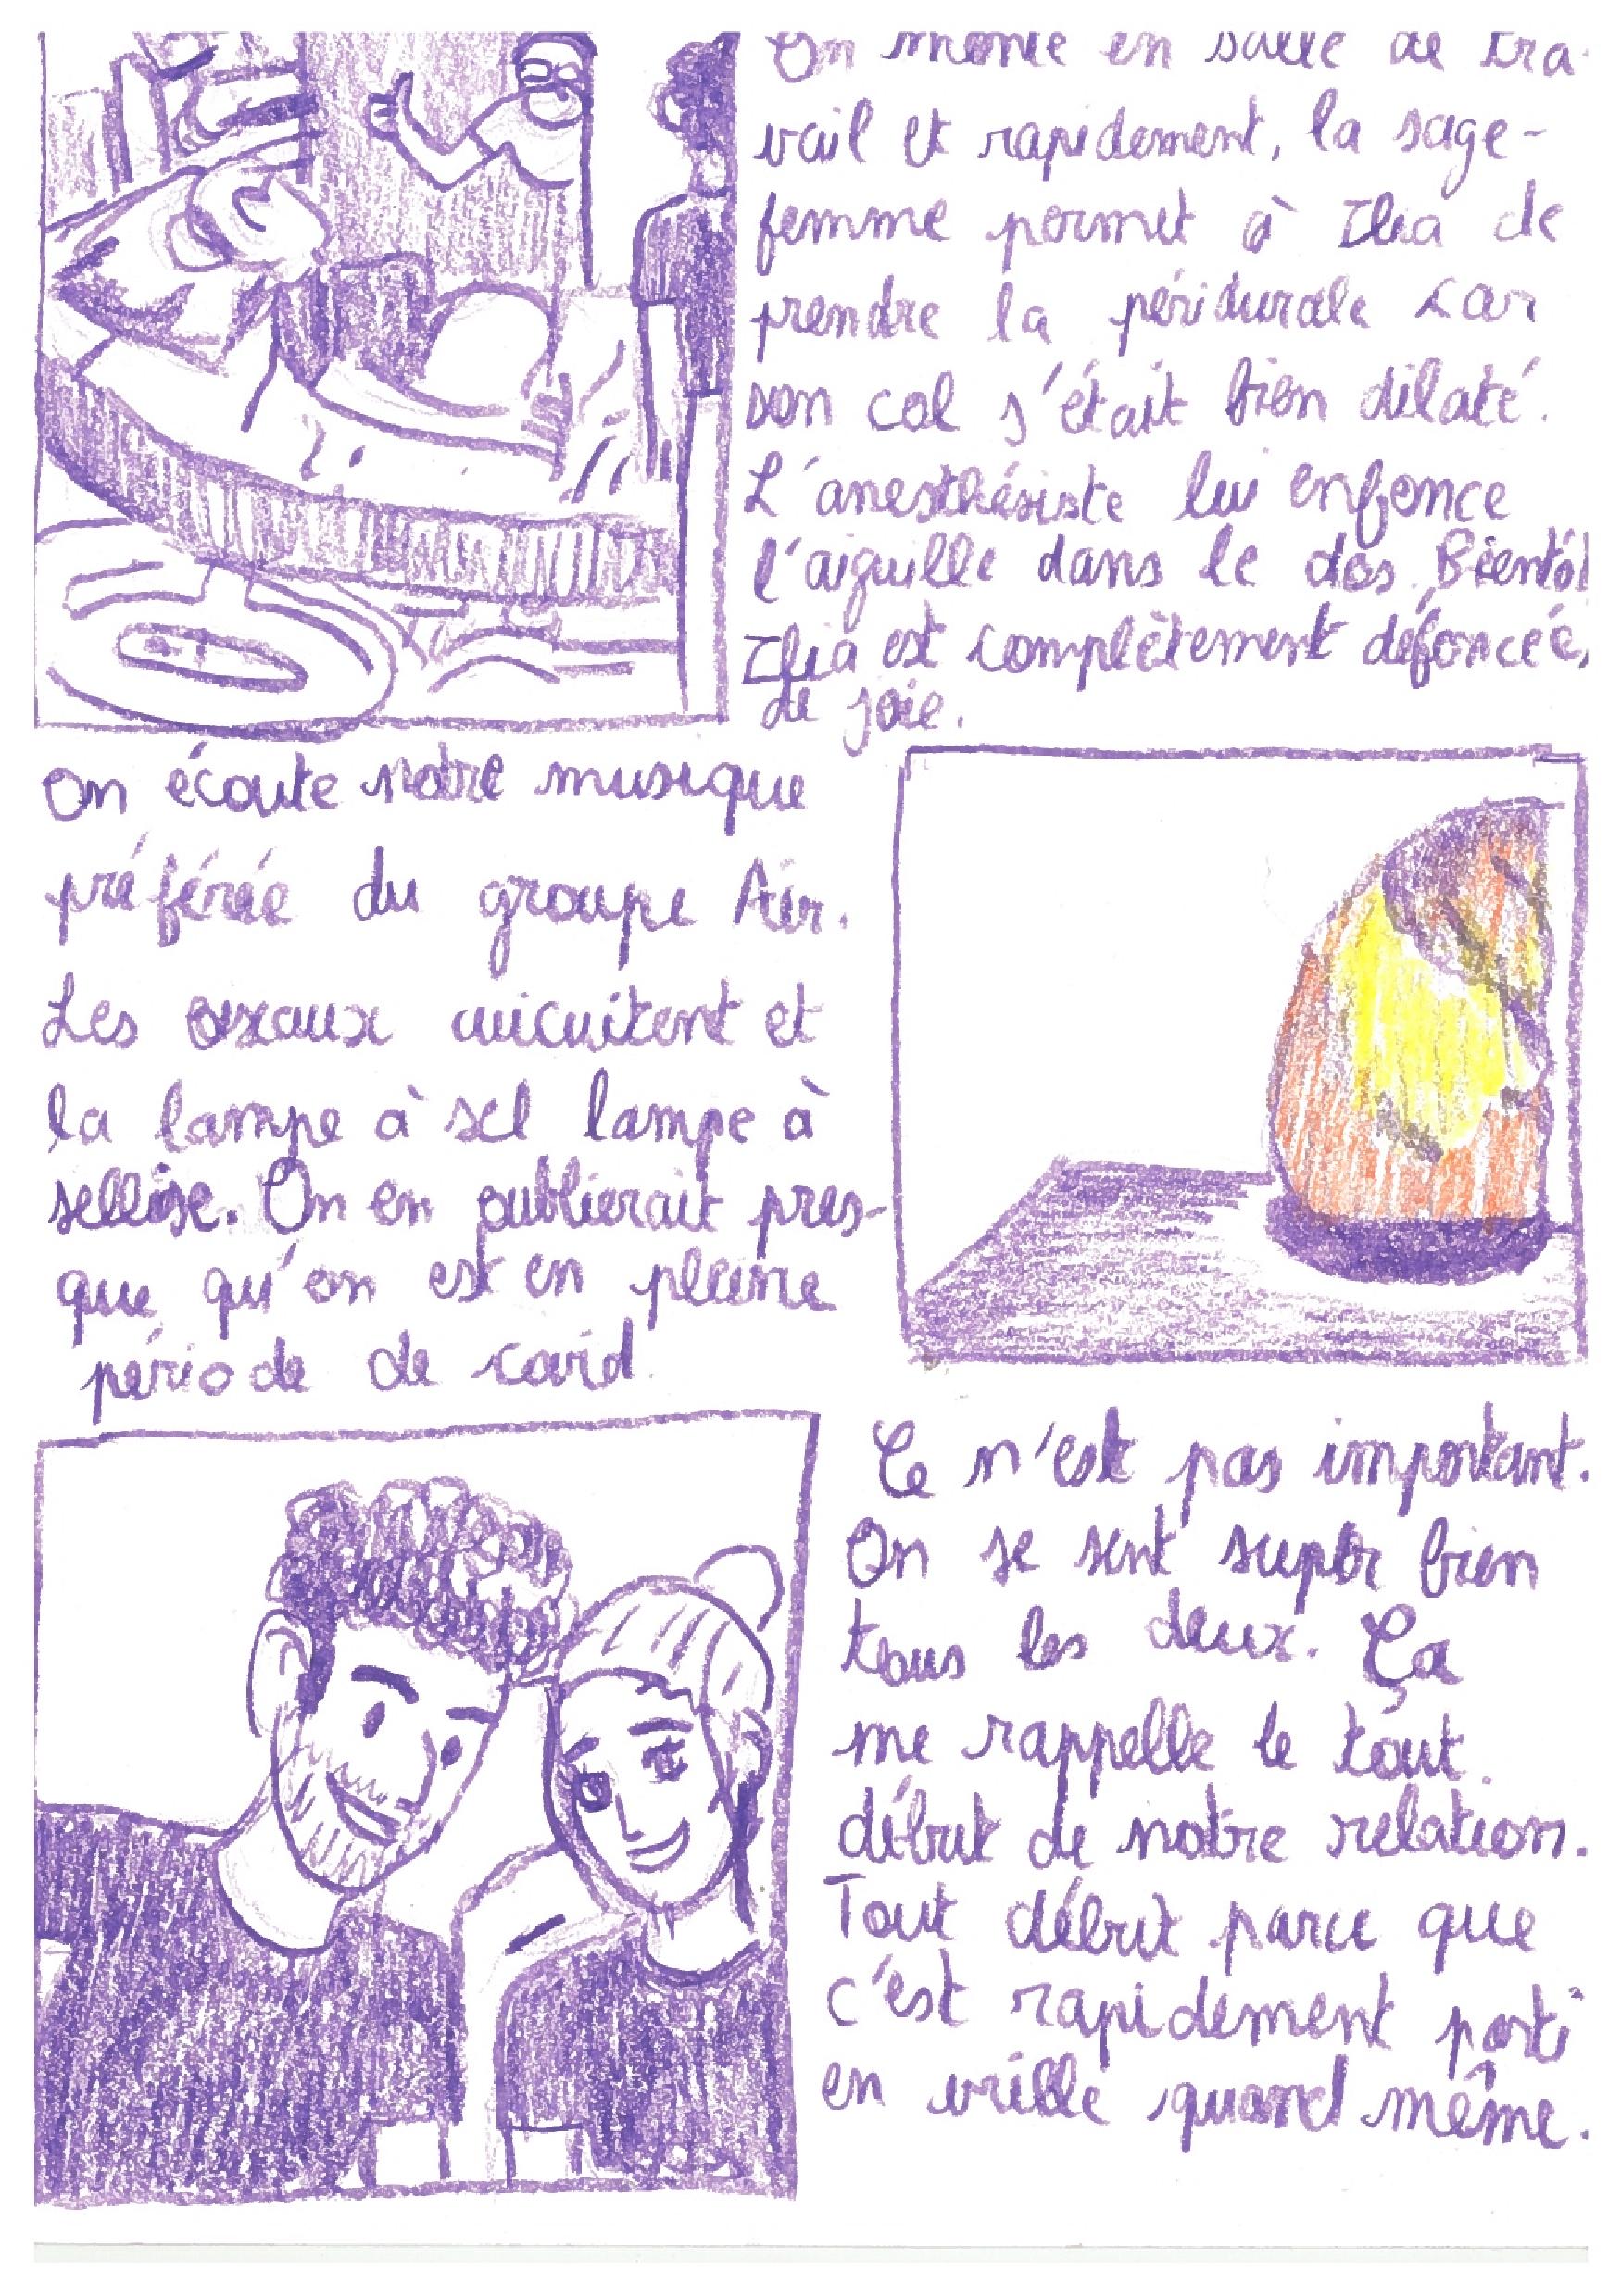 On monte en salle de tra-
vail et rapidement, la sage-
femme permet à Ilia de
prendre la péridurale car
son col s'était bien dilaté.
L'anesthésiste lui enfonce
l'aiguille dans le dos. Bientôt
Ilia est complètement défoncée,
de joie.
On écoute notre musique
préférée du groupe Air.
Les oizaux cuicuitent et
la lampe à sel lampe à
sellise. On en oublierait pres-
que qu'on est en pleine
période de covid.
Ce n'est pas important.
On se sent super bien
tous les deux. Ça
me rappelle le tout
début de notre relation.
Tout début parce que
c'est rapidement parti
en vrille quand même.